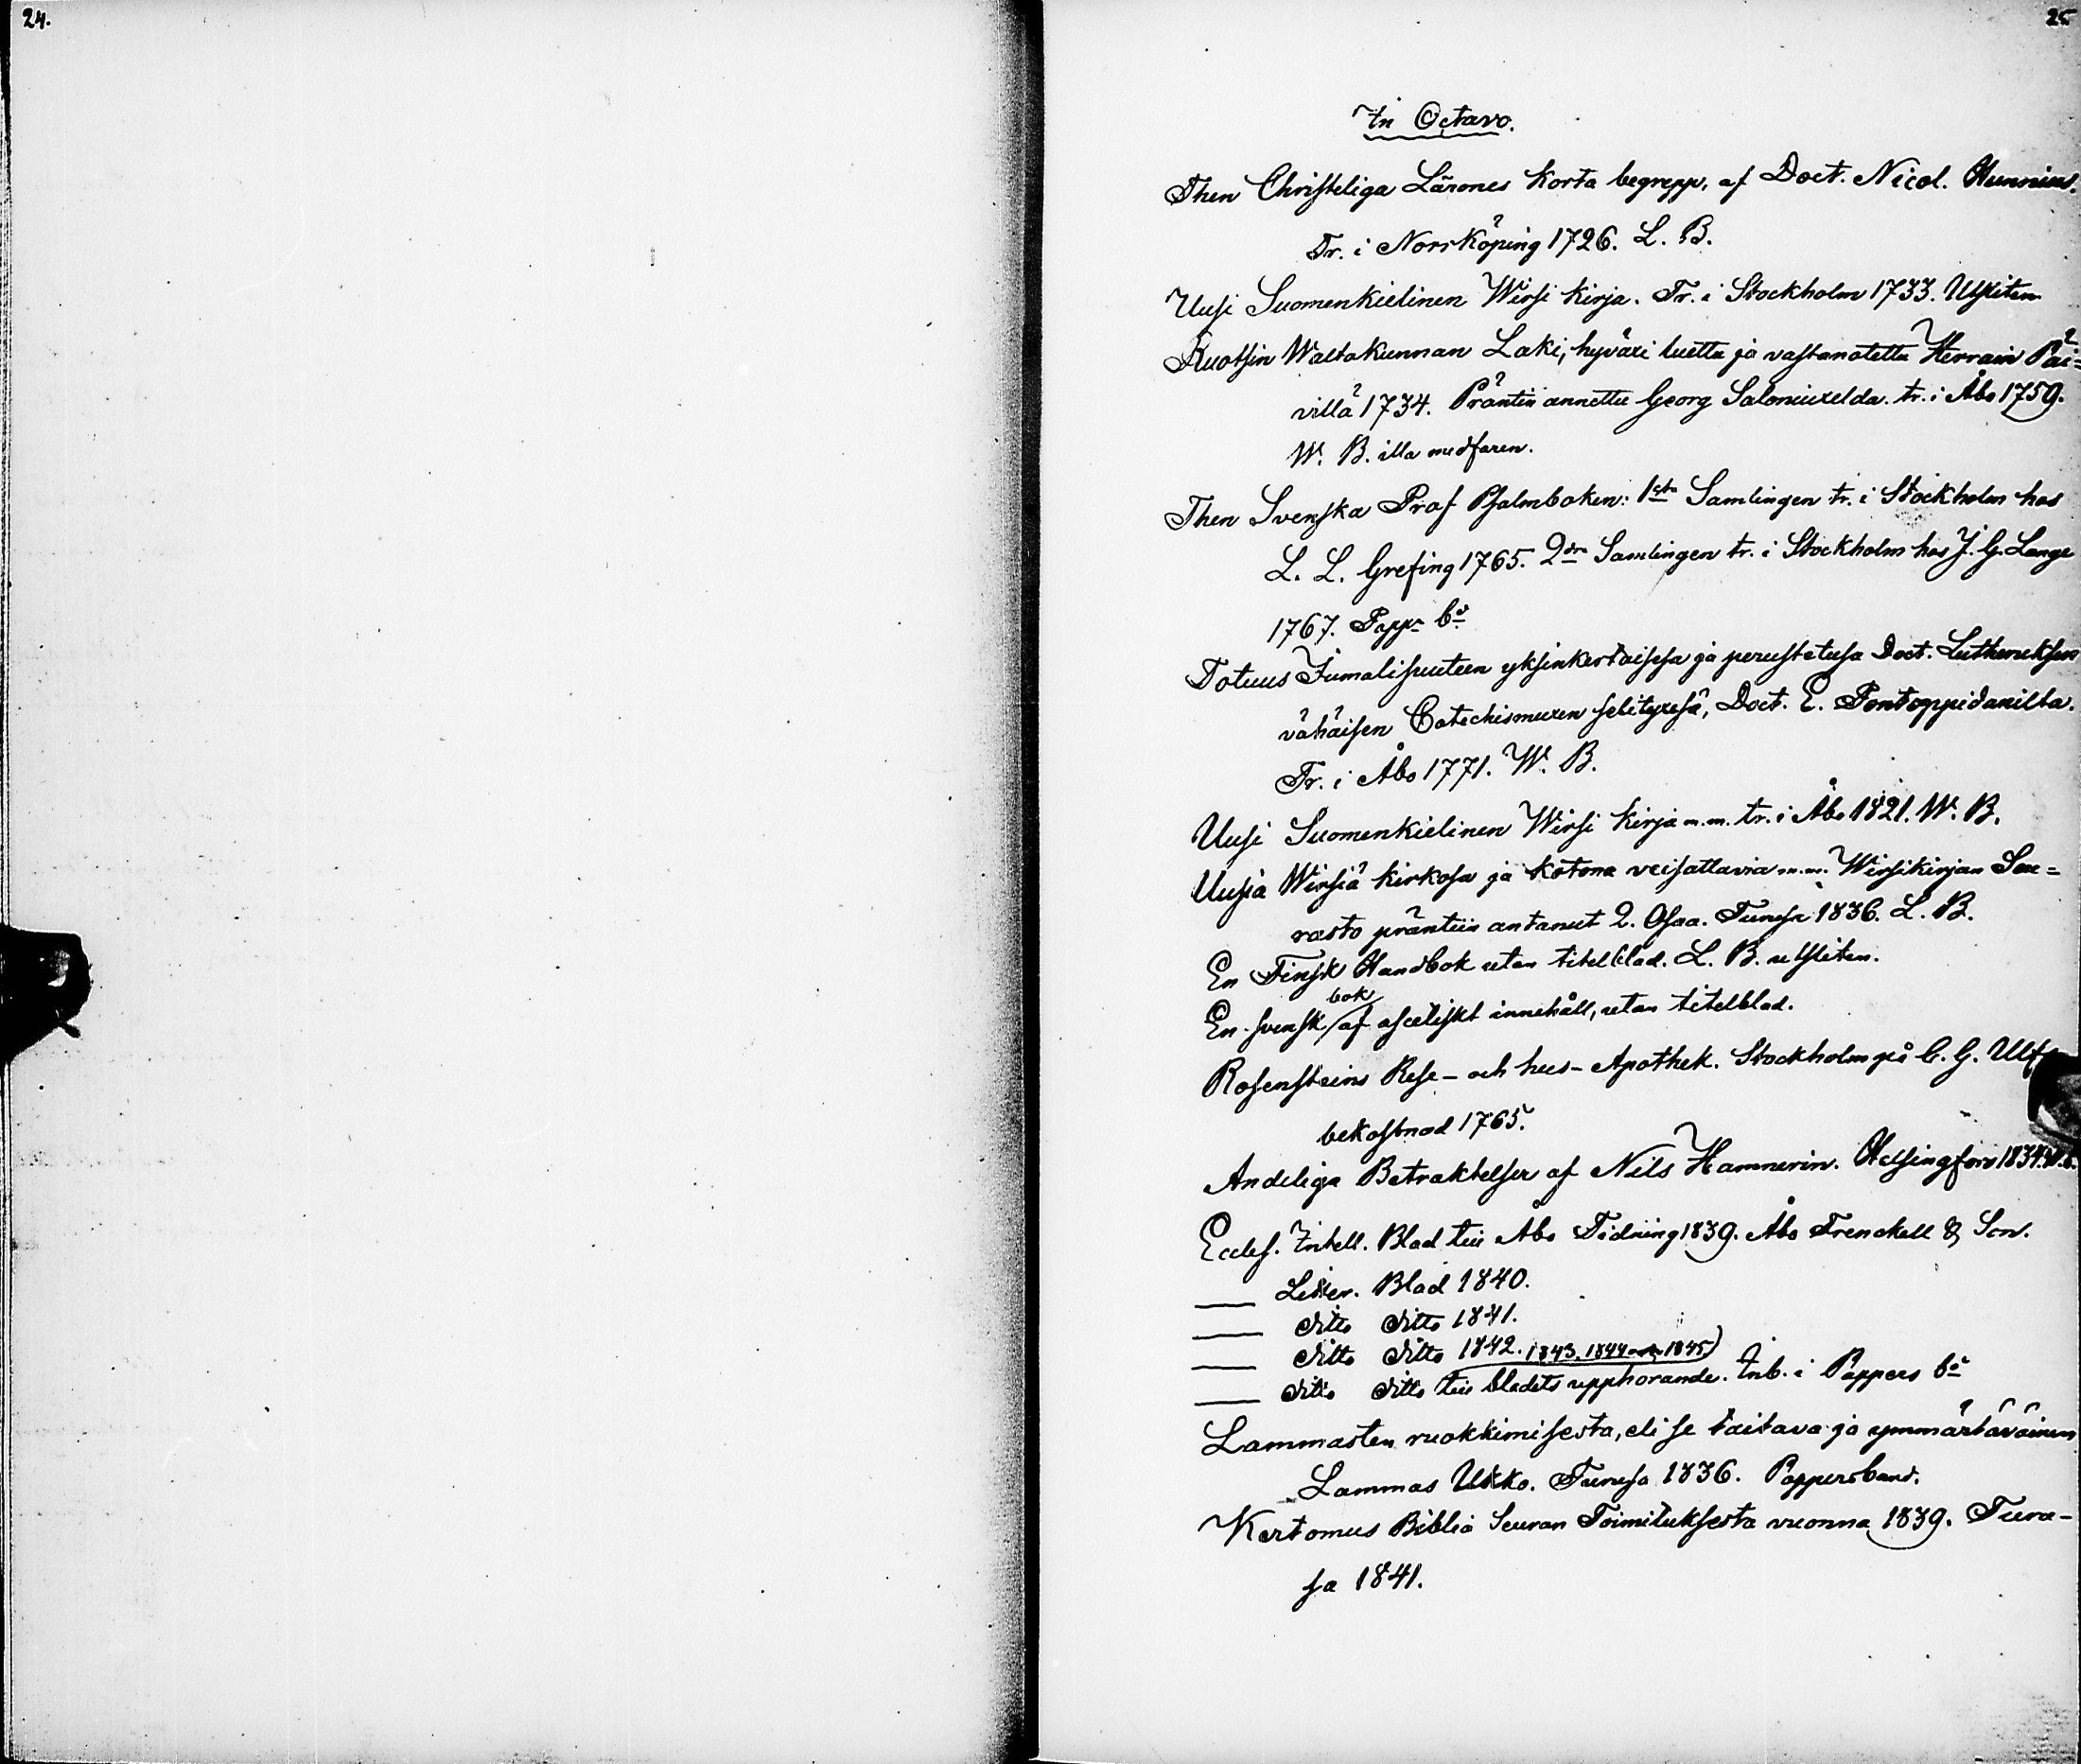 24.
25
In Octavo.
Then Christeliga Lärones Korta begrepp, af Doct. Nicol. Hunnius.
Tr. i Norrköping 1726. L. B.
Uusi Suomenkielinen Wirsi kirja. Tr. i Stockholm 1733. Utsliten
Ruotsin Waltakunnan Laki, hyväxi luettu ja vastanotettu Herrain Päi=
villä 1734. Präntiin annettu Georg Saloniuxelda. tr. i Åbo 1759.
W. B. illa medfaren.
Then Svenska Prof Psalmboken: 1sta Samlingen tr. i Stockholm hos
L. L. Grefing 1765. 2dra Samlingen tr. i Stockholm hos J. G. Lange
1767. Papps bd
Totuus Jumalisuuteen yksinkertaisesa ja perustetusa Doct. Lutheruksen
vähäisen Catechismuxen selityxesä, Doct. E. Pontoppidanilta.
Tr. i Åbo 1771. W. B.
Uusi Suomenkielinen Wirsi kirja m.m. tr. i Åbo 1821. W. B.
Uusia Wirsiä kirkosa ja kotona veisattavia m.m. Wirsikirjan Seu=
rasto präntiin antanut 2. Osaa. Turusa 1836. L. B.
En Finsk Handbok utan titelblad. L. B. utsliten.
En svensk bok af ascetiskt innehåll, utan titelblad.
Rosensteins Rese- och hus- Apothek. Stockholm på C. G. Ulfs
bekostnad 1765.
Andeliga Betraktelser af Nils Hamnerin. Helsingfors 1837. W. B.
Eccles. Intell. Blad till Åbo Tidning 1839. Åbo Frenckell & Son.
— Litter. Blad 1840.
— ditto ditto 1841.
— ditto ditto 1842. 1843. 1844 och 1845
— ditto ditto till bladets upphörande. Inb. i Pappers bd
Lammasten ruokkimisesta, eli se taitava ja ymmärtäväinen
Lammas Ukko. Turusa 1836. Pappersband.
Kertomus Biblia Seuran Toimituksesta vuonna 1839. Turu-
sa 1841.